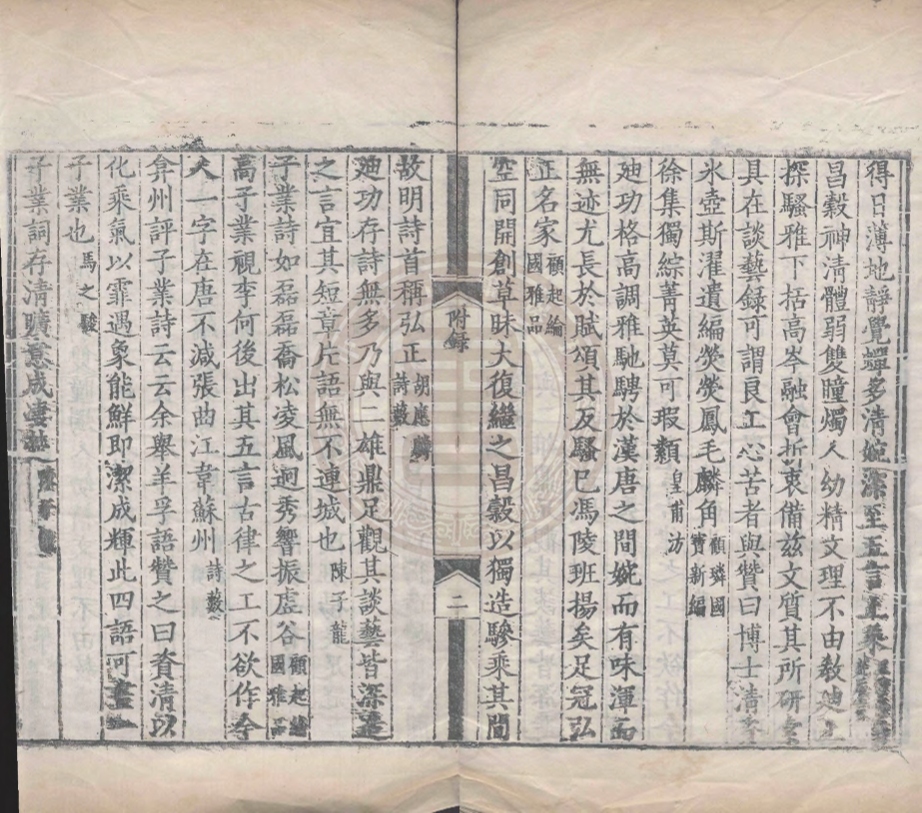 得日薄地靜覺蟬多清婉深至五言上乘
昌穀神清體弱雙瞳燭人幼精文理不由教迪
探騷雅下括高岑融會折衷備兹文質其所研
具在談藝録可謂良工心苦者與贊曰博士清
氷壺斯濯遺編熒熒鳳毛麟角顧璘國寶新編
徐集獨綜菁英莫可瑕纇皇甫汸
廸功格高調雅馳騁於漢唐之間婉而有味渾而
無迹尤長於賦頌其反騷巳馮陵班揚矣足冠弘
正名家顧起綸國雅品
空同開創草昧大復繼之昌穀以獨造驂乘其間
附録
二
故明詩首稱弘正胡應麟詩藪
廸功存詩無多乃與二雄鼎足觀其談藝皆深造
之言宜其短章片語無不連城也陳子龍
子業詩如磊磊喬松凌風迥秀響振虛谷顧起綸國雅品
高子業視李何後出其五言古律之工不欲作今
人一字在唐不減張曲江韋蘇州詩藪
弇州評子業詩云云余舉羊孚語贊之曰資清以
化乘氣以霏遇象能鮮即潔成輝此四語可盡
子業也馬之駿
子業詞存清曠意成凄